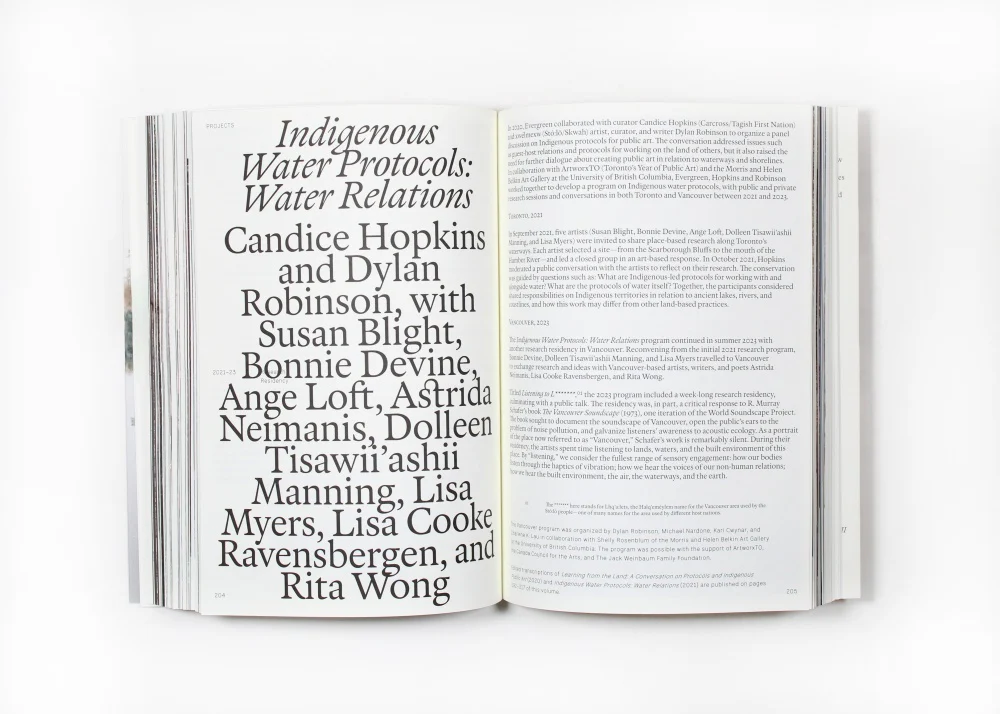 PROJECTS
Indigenous
Water Protocols:
Water Relations
Candice Hopkins
and Dylan
Robinson, with
Susan Blight,
Bonnie Devine,
2021–23
Residency
Ange Loft, Astrida
Neimanis, Dolleen
Tisawii’ashii
Manning, Lisa
Myers, Lisa Cooke
Ravensbergen, and
Rita Wong
204
In 2020, Evergreen collaborated with curator Candice Hopkins (Carcross/Tagish First Nation)
and (Stó:lō/Skwah) artist, curator, and writer Dylan Robinson to organize a panel
discussion on Indigenous protocols for public art. The conversation addressed issues such
as guest-host relations and protocols for working on the land of others, but it also raised the
need for further dialogue about creating public art in relation to waterways and shorelines.
In collaboration with ArtworxTO (Toronto’s Year of Public Art) and the Morris and Helen
Belkin Art Gallery at the University of British Columbia, Evergreen, Hopkins and Robinson
worked together to develop a program on Indigenous water protocols, with public and private
research sessions and conversations in both Toronto and Vancouver between 2021 and 2023.
TORONTO, 2021
In September 2021, five artists (Susan Blight, Bonnie Devine, Ange Loft, Dolleen Tisawii’ashii
Manning, and Lisa Myers) were invited to share place-based research along Toronto’s
waterways. Each artist selected a site—from the Scarborough Bluffs to the mouth of the
Humber River—and led a closed group in an art-based response. In October 2021, Hopkins
moderated a public conversation with the artists to reflect on their research. The conservation
was guided by questions such as: What are Indigenous-led protocols for working with and
alongside water? What are the protocols of water itself? Together, the participants considered
shared responsibilities on Indigenous territories in relation to ancient lakes, rivers, and
coastlines, and how this work may differ from other land-based practices.
VANCOUVER, 2023
The Indigenous Water Protocols: Water Relations program continued in summer 2023 with
another research residency in Vancouver. Reconvening from the initial 2021 research program,
Bonnie Devine, Dolleen Tisawii’ashii Manning, and Lisa Myers travelled to Vancouver
to exchange research and ideas with Vancouver-based artists, writers, and poets Astrida
Neimanis, Lisa Cooke Ravensbergen, and Rita Wong.
Titled Learning to L*******, the 2023 program included a week-long research residency,
culminating with a public talk. The residency was, in part, a critical response to R. Murray
Schafer’s book The Vancouver Soundscape (1973), one iteration of the World Soundscape Project.
The book sought to document the soundscape of Vancouver, open the public’s ears to the
problem of noise pollution, and galvanize listeners’ awareness to acoustic ecology. As a portrait
of the place now referred to as “Vancouver,” Schafer’s work is remarkably silent. During their
residency, the artists spent time listening to lands, waters, and the built environment of this
place. By “listening,” we consider the fullest range of sensory engagement: how our bodies
listen through the haptics of vibration; how we hear the voices of our non-human relations;
how we hear the built environment, the air, the waterways, and the earth.
The ******* here stands for the Halq'eméylem name for the Vancouver area used by the
Stó:lō people—one of many names for the area used by different first nations
The Vancouver program was organized by Dylan Robinson, Michael Nardone, Kari Cwynar, and
in collaboration with Shelly Rosenblum of the Morris and Helen Belkin Art Gallery
at the University of British Columbia. The program was possible with the support of ArtworxTO,
the Canada Council for the Arts, and The Jack Weinbaum Family Foundation.
transcriptions of Learning from the Land: A Conversation on Protocols and Indigenous
Public Art (2020) and Indigenous Water Protocols: Water Relations (2021) are published on pages
of this volume.
205